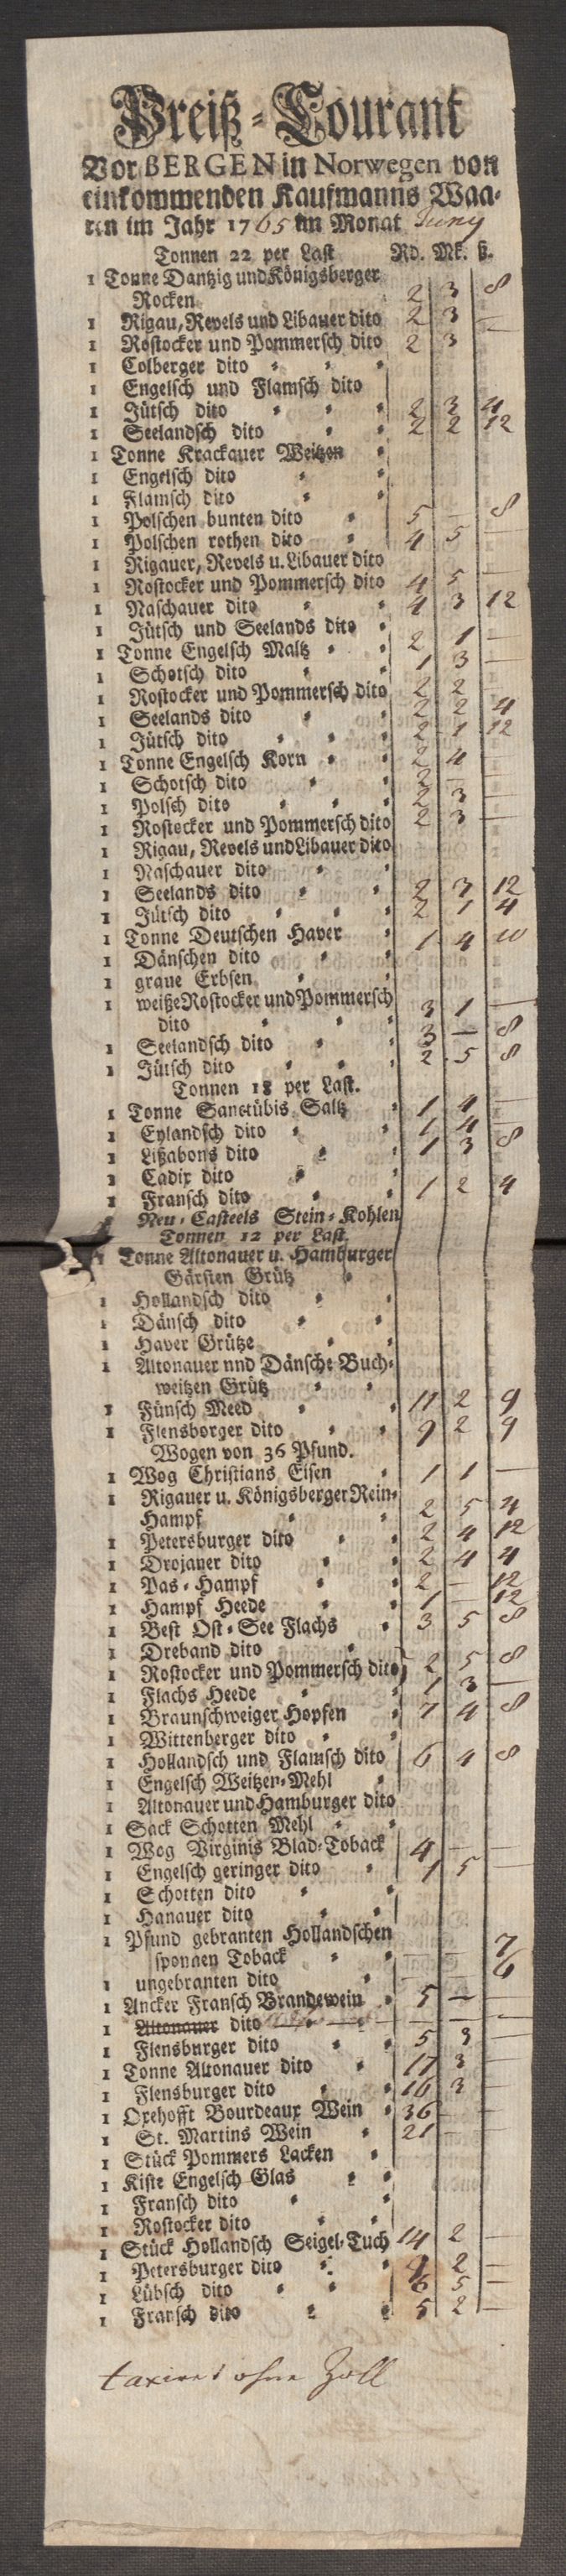 Preiß-Courant
Vor BERGEN in Norwegen von
einkommenden Kaufmanns Waa-
ren im Jahr 1765 im Monat Juny
Tonnen 22 per Last Rd. Mk. ß.
1 Tonne Dantzig und Königsberger
Rocken 2 3 8
1 Rigau, Revels und Libauer dito 2 3 —
1 Rostocker und Pommersch dito 2 3
1 Colberger dito
1 Engelsch und Flamsch dito
1 Jütsch dito 2 3 4
1 Seelandsch dito 2 2 12
1 Tonne Krackauer Weitzen
1 Engelsch dito
1 Flamsch dito
1 Polschen bunten dito 5 — 8
1 Polschen rothen dito 4 5 —
1 Rigauer, Revels u. Libauer dito
1 Rostocker und Pommersch dito 4 5 —
1 Naschauer dito 4 3 12
1 Jütsch und Seelands dito
1 Tonne Engelsch Maltz 2 1 —
1 Schotsch dito 1 3 —
1 Rostocker und Pommersch dito 2 2 —
1 Seelands dito 2 2 4
1 Jütsch dito 2 1 12
1 Tonne Engelsch Korn 2 4 —
1 Schotsch dito 2 —
1 Polsch dito 2 3 —
1 Rostecker und Pommersch dito 2 3 —
1 Rigau, Revels und Libauer dito
1 Naschauer dito
1 Seelands dito 2 3 12
1 Jütsch dito 2 1 4
1 Tonne Deutschen Haver 1 4 10
1 Dänschen dito
1 graue Erbsen
1 weiße Rostocker und Pommersch
dito 3 1 —
1 Seelandsch dito 3 — 8
1 Jütsch dito 2 5 8
Tonnen 18 per Last.
1 Tonne Sanctübis Saltz 1 4 —
1 Eylandsch dito 1 4
1 Lißabons dito 1 3 8
1 Cadix dito
1 Fransch dito 1 2 4
1 Neu-Casteels Stein-Kohlen
Tonnen 12 per Last.
1 Tonne Altonauer u. Hamburger
Gärsten Grütz
1 Hollandsch dito
1 Dänsch dito
1 Haver Grütze
1 Altonauer und Dänsche Buch-
weitzen Grütz
1 Fünsch Meed 11 2 9
1 Flensborger dito 9 2 9
Wogen von 36 Pfund.
1 Wog Christians Eisen 1 1 —
1 Rigauer u. Königsberger Rein-
Hampf 2 5 4
1 Petersburger dito 2 4 12
1 Drojaner dito 2 4 4
1 Pas-Hampf 2 — 12
1 Hampf Heede 1 — 12
1 Best Ost-See Flachs 3 5 8
1 Dreband dito
1 Rostocker und Pommersch dito 2 5 8
1 Flachs Heede 1 3 —
1 Braunschweiger Hopfen 7 4 8
1 Wittenberger dito
1 Hollandsch und Flamsch dito 6 4 8
1 Engelsch Weitzen-Mehl
1 Altonauer und Hamburger dito
1 Sack Schotten Mehl
1 Wog Virginis Blad-Toback 4 — —
1 Engelsch geringer dito 1 5 —
1 Schotten dito
1 Hanauer dito
1 Pfund gebranten Hollandschen
sponnen Toback — — 7
1 ungebranten dito — — 6
1 Ancker Fransch Brandewein 5 — —
1 Altonauer dito — — —
1 Flensburger dito 5 3 —
1 Tonne Altonauer dito 17 3 —
1 Flensburger dito 16 3 —
1 Oxehofft Bourdeaux Wein 36
1 St. Martins Wein 21 —
1 Stück Pommers Lacken
1 Kiste Engelsch Glas
1 Fransch dito
1 Rostocker dito
1 Stück Hollandsch Seigel-Tuch 14 2 —
1 Petersburger dito 9 2 —
1 Lübsch dito 6 5 —
1 Fransch dito 5 2 —
taxiret ohne Zoll